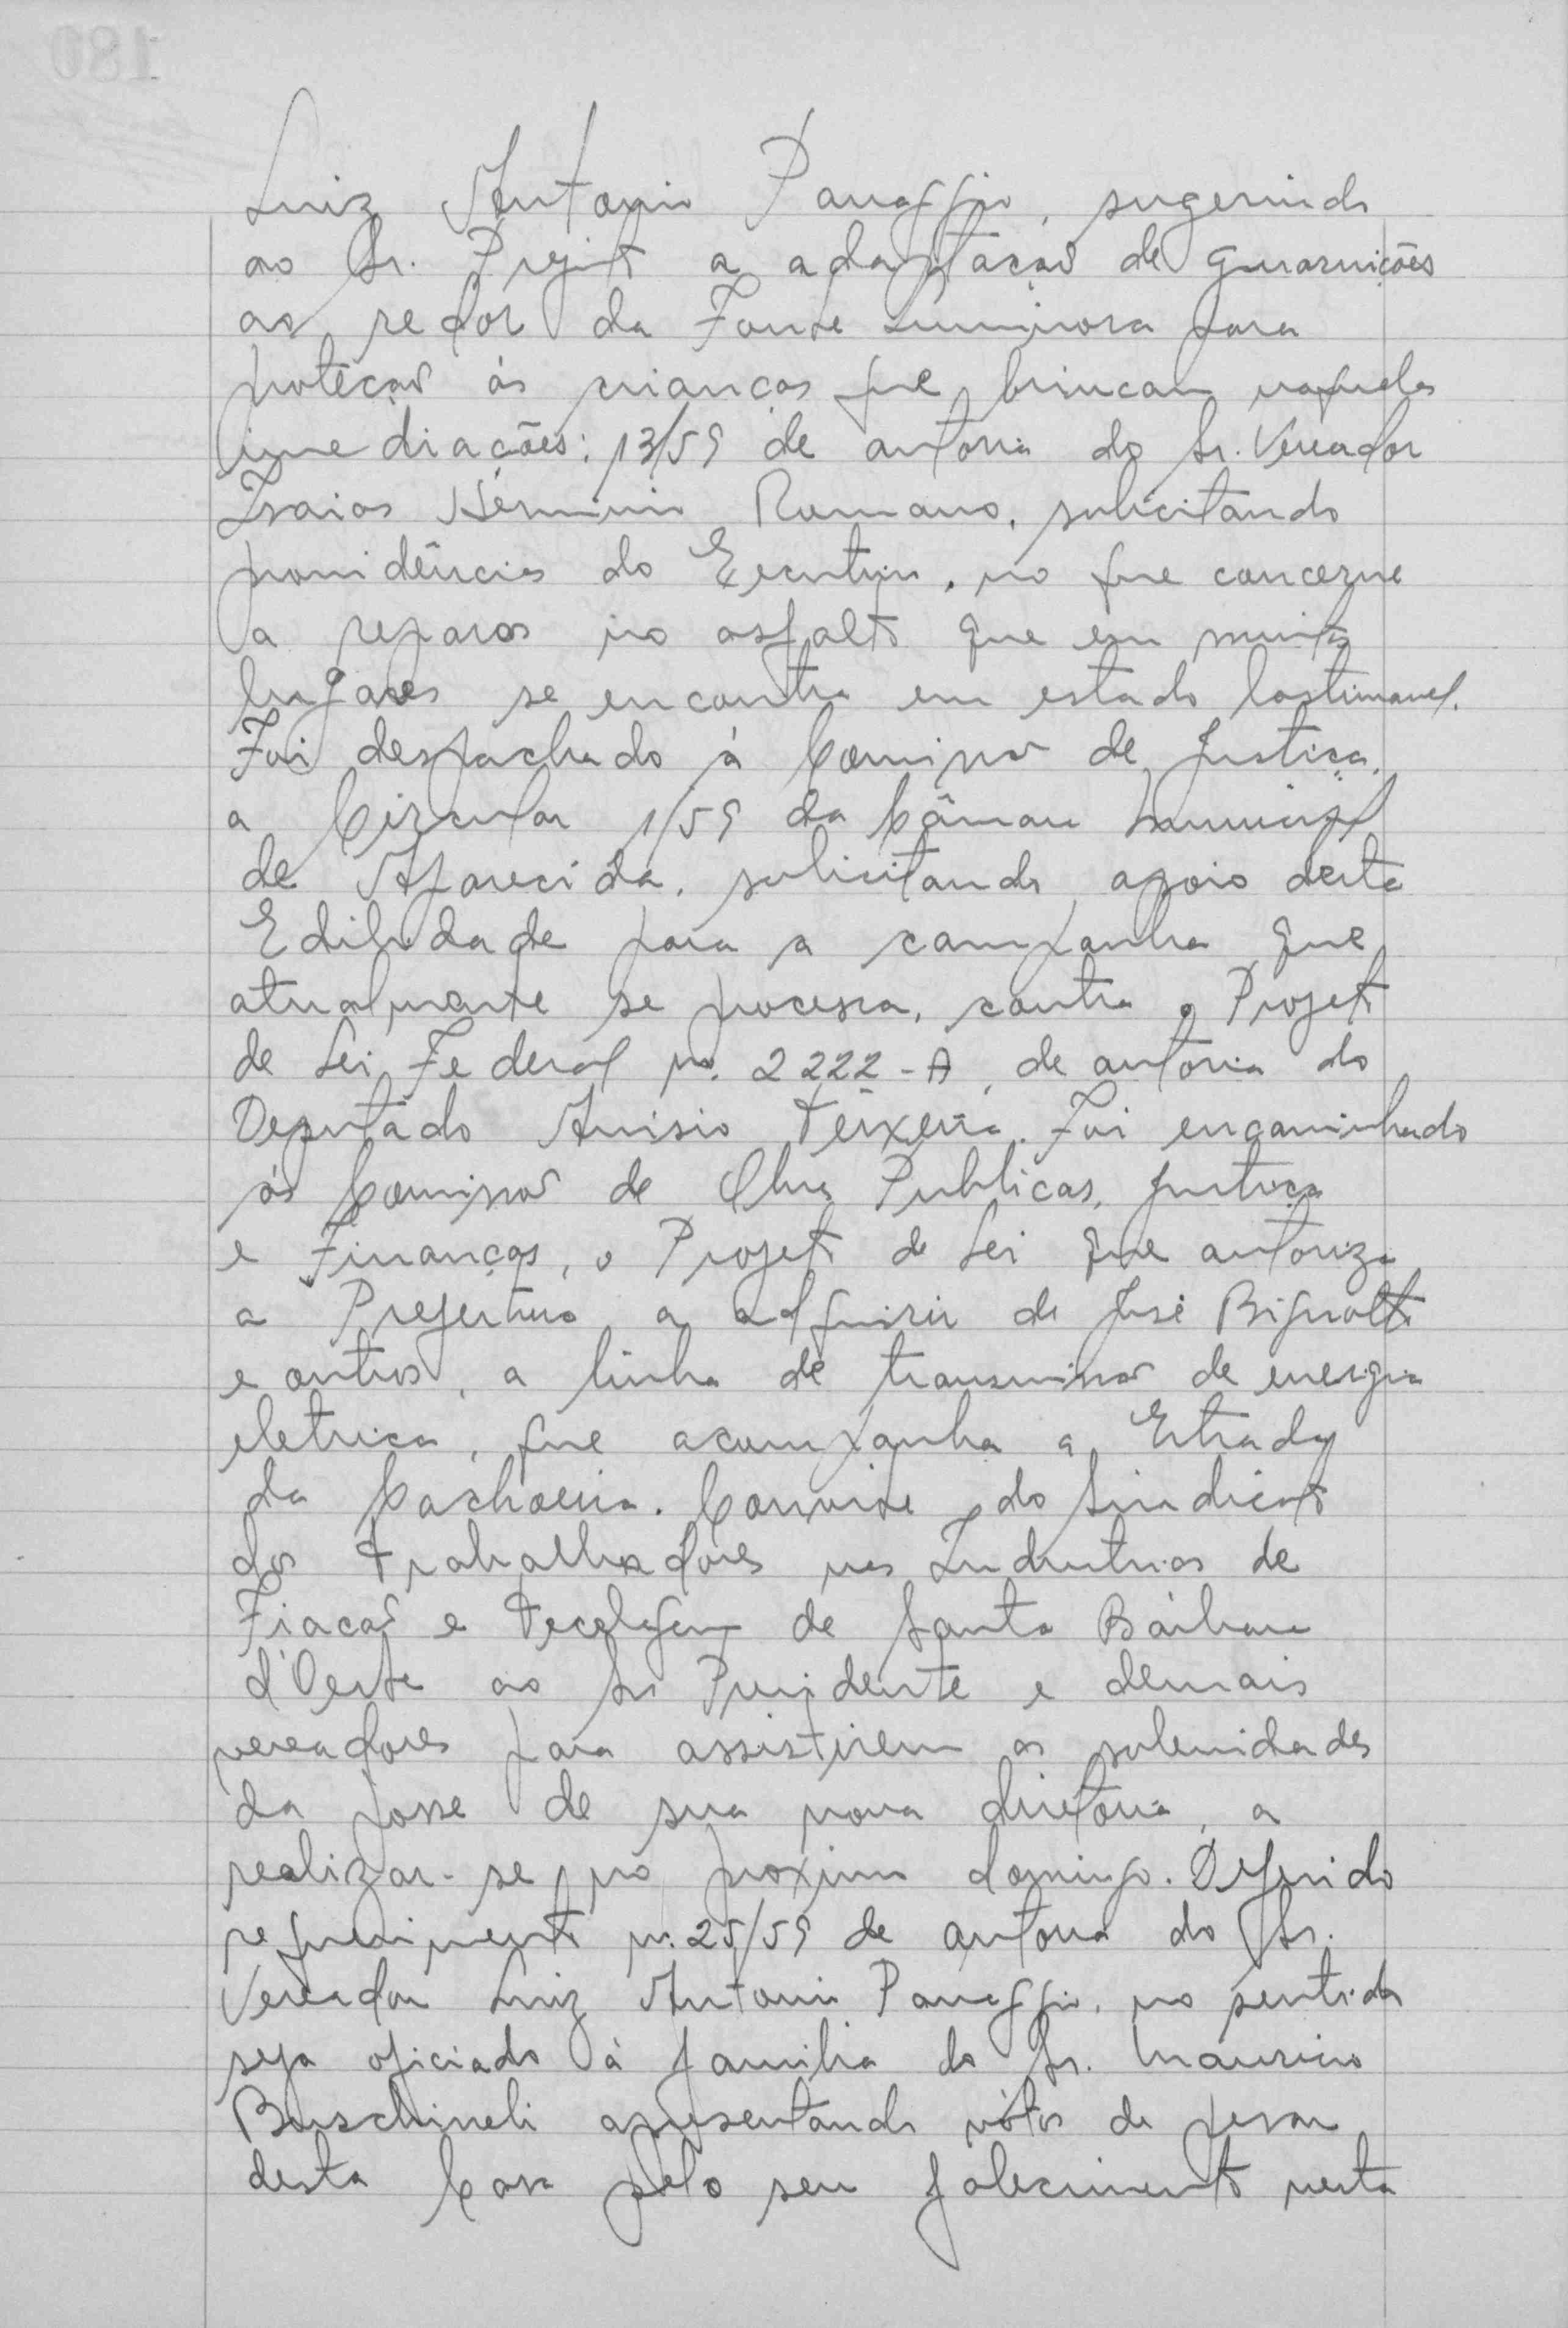 Luiz Antonio Panaggio, sugerindo
ao Sr. Prefeito a adaptação de guarnições
ao redór da Fonte Luminosa para
proteção ás crianças que brincam naquelas
imediações; 13/59 de autoria do Sr. Vereador
Isaias Herminio Romano, solicitando
providências do Executivo, no que concerne
a reparos no asfalto que em muitos
lugares se encontra em estado lastimavel.
Foi despachado à Comissão de Justiça,
a Circular 1/59 da Câmara Municipal
de Aparecida, solicitando apoio desta
Edilidade para a campanha que
atualmente se processa, contra o Projeto
de Lei Federal n. 2222-A, de autoria do
Deputado Anisio Teixeira. Foi encaminhado
ás Comissão de Obras Publicas, Justiça
e Finanças, o Projeto de Lei que autoriza
a Prefeitura a adquirir de José Bignotto
e outros, a linha de transmissão de energia
eletrica, que acompanha a Estrada
da Cachoeira. Convite do Sindicato
dos Trabalhadores nas Industrias de
Fiação e Tecelagem de Santa Bárbara
d'Oeste ao Sr Presidente e demais
vereadores para assistirem as solenidades
da posse de sua nova diretoria, a
realizar-se no proximo domingo. Deferido
requerimento n. 25/59 de autoria do Sr.
Vereador Luiz Antonio Panaggio, no sentido
seja oficiado à familia do Sr. Mauricio
Buschineli apresentando vótos de pesar
desta Casa pelo seu falecimento nesta